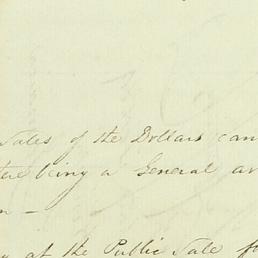 Sales of the Dollars can
being a General
at the Public Sale